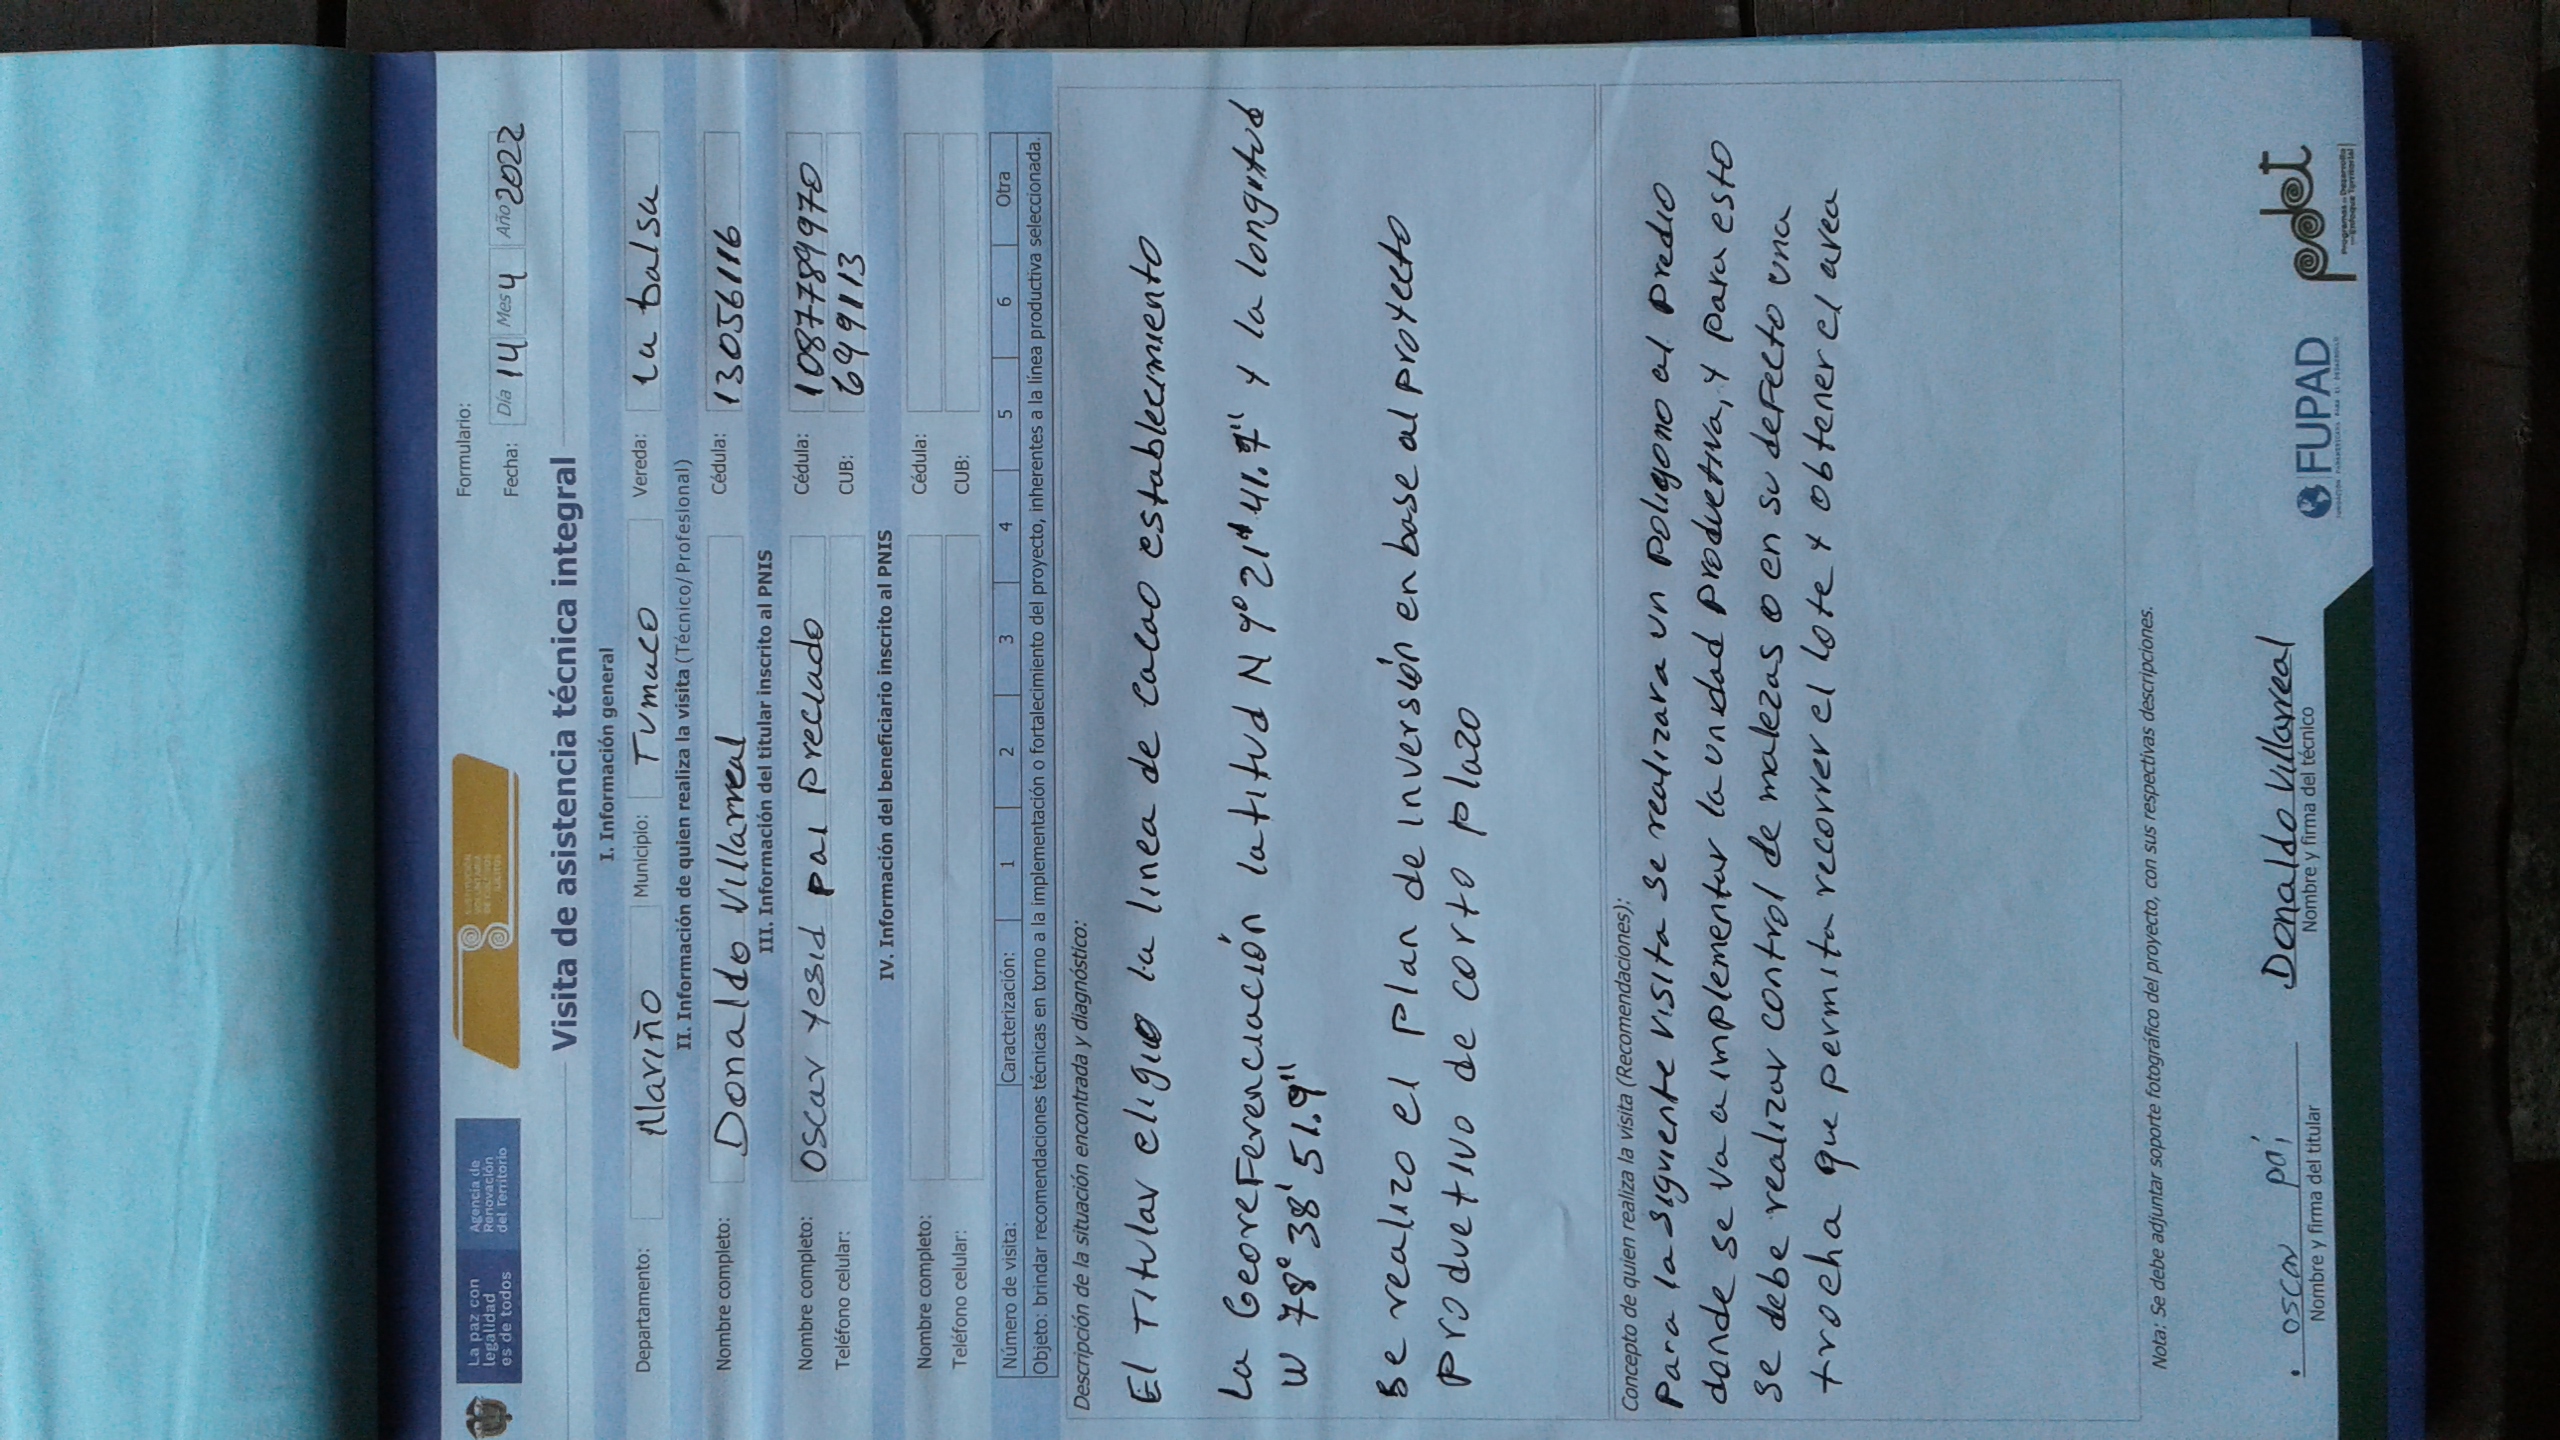 La paz con
legalidad
es de todos
Agencia de
Renovación
del Territorio
Formulario:
Fecha: Día 14 Mes 4 Año 2022
Visita de asistencia técnica integral
I. Información general
Departamento: Nariño Municipio: Tumaco Vereda: La balsa
II. Información de quien realiza la visita (Técnico/ Profesional)
Nombre completo: Donaldo Villarreal Cédula: 13056116
III. Información del titular inscrito al PNIS
Nombre completo: Oscar Yesid pai Preciado Cédula: 1087789970
Teléfono celular: CUB: 699113
IV. Información del beneficiario inscrito al PNIS
Nombre completo: Cédula:
Teléfono celular: CUB:
Número de visita: Caracterización: 1 2 3 4 5 6 Otra
Objeto: brindar recomendaciones técnicas en torno a la implementación o fortalecimiento del proyecto, inherentes a la línea productiva seleccionada.
Descripción de la situación encontrada y diagnóstico:
El Titular eligio la linea de cacao establecimiento
La GeoreFerenciación latitud N 4° 21' 41.7" y la longitud
W 78° 38' 51.9"
Se realizo el Plan de inversión en base al proyecto
productivo de corto plazo
Concepto de quien realiza la visita (Recomendaciones):
Para la siguiente visita se realizara un poligono al predio
donde se va a implementar la unidad productiva, y para esto
se debe realizar control de malezas o en su defecto una
trocha que permita recorrer el lote y obtener el area
Nota: Se debe adjuntar soporte fotográfico del proyecto, con sus respectivas descripciones.
oscar pai
Nombre y firma del titular
Donaldo Villarreal
Nombre y firma del técnico
FUPAD
pdet
Programas de Desarrollo
con Enfoque Territorial